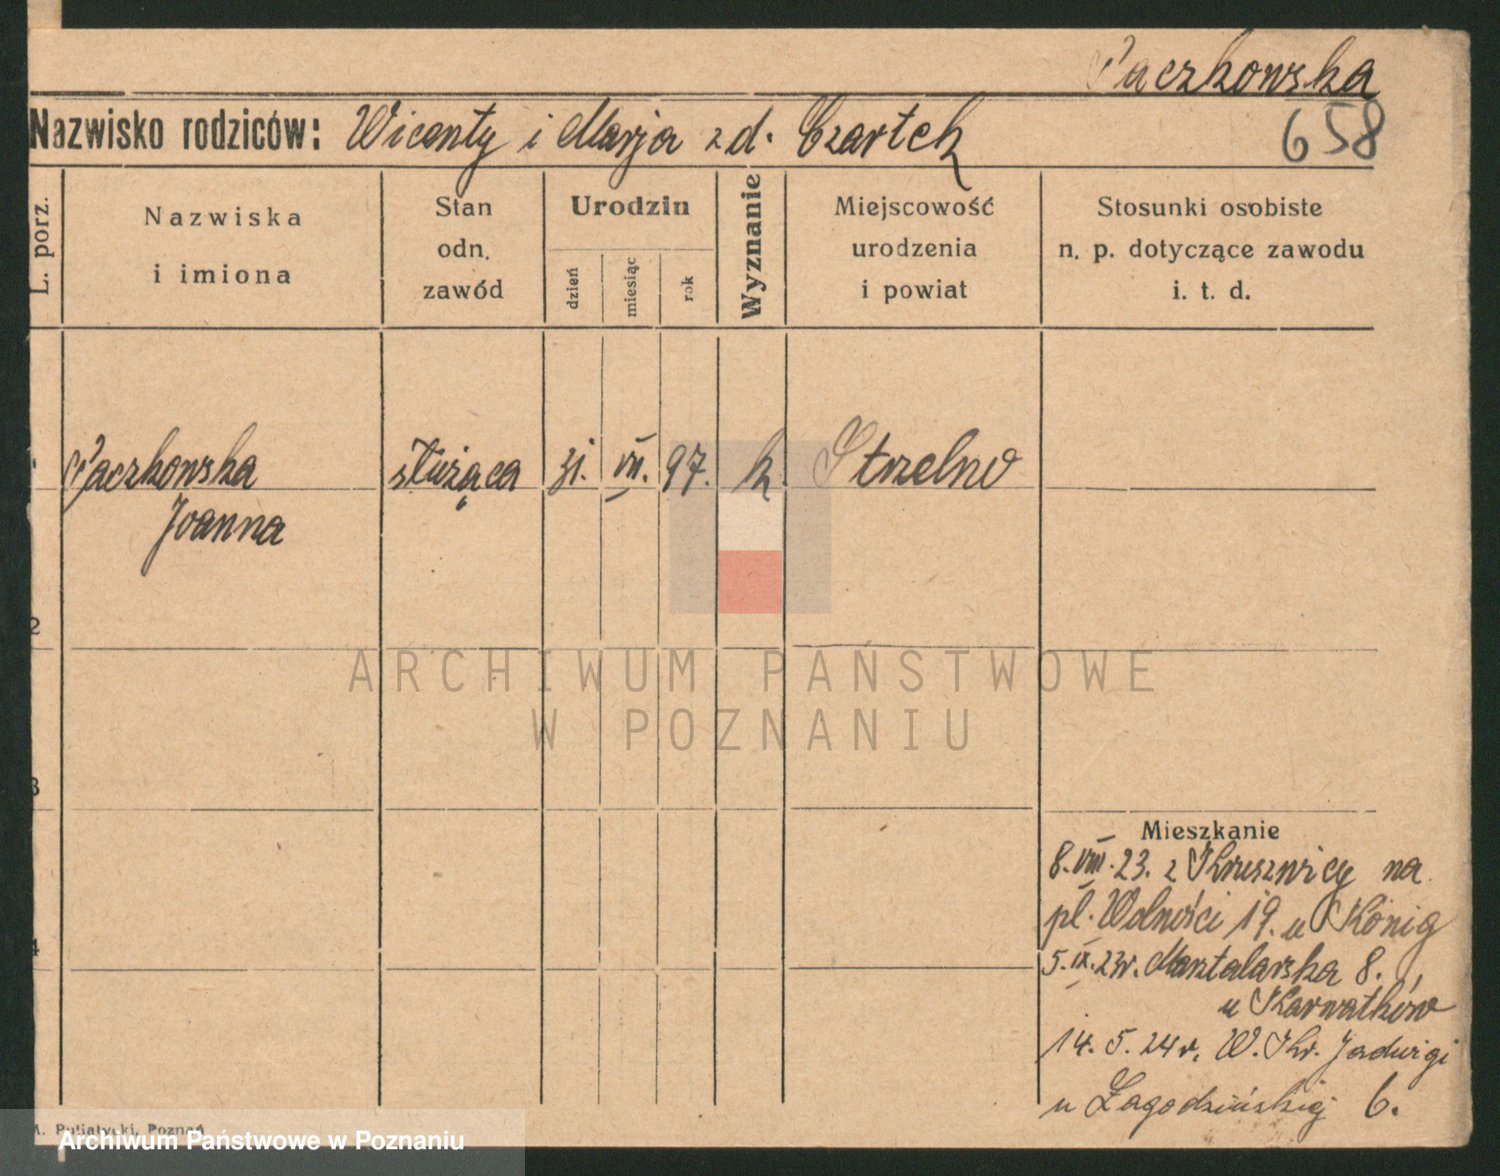 Paczkowska
Nazwisko rodziców: Wicenty i Marja z d. Czartek
658
L. porz.
Nazwiska
i imiona
Stan
odn.
zawód
Urodzin
dzień
miesiąc
rok
Wyznanie
Miejscowość
urodzenia
i powiat
Stosunki osobiste
n. p. dotyczące zawodu
i. t. d.
Paczkowska służąca 31. VII. 97. k. Strzelno
Joanna
2
3
4
Mieszkanie
8. VIII. 23. z Kruszwicy na
pl. Wolności 19. u König
5. IX. 23r. Masztalarska 8.
u Karwatków
14. 5. 24 r. W. Kr. Jadwigi
u Łagodzińskiej 6.
ARCHIWUM PAŃSTWOWE
W POZNANIU
A. Putiatycki, Poznań
Archiwum Państwowe w Poznaniu